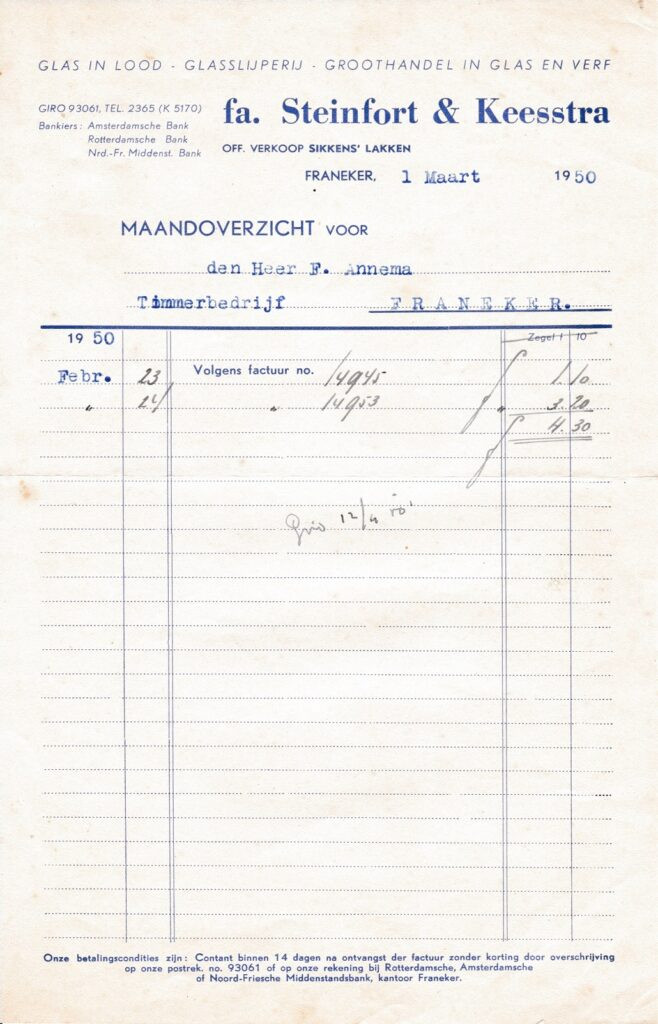 GLAS IN LOOD - GLASSLIJPERIJ - GROOTHANDEL IN GLAS EN VERF
GIRO 93061, TEL. 2365 (K 5170)
Bankiers: Amsterdamsche Bank
Rotterdamsche Bank
Nrd.-Fr. Middenst. Bank
fa. Steinfort & Keesstra
OFF. VERKOOP SIKKENS' LAKKEN
FRANEKER, 1 Maart 1950
MAANDOVERZICHT VOOR
den Heer F. Annema
Timmerbedrijf FRANEKER.
1950 Zegel f 10
Febr. 23 Volgens factuur no. 14945 f 1.10
" 24 " 14953 f " 3.20
f 4.30
Giro 12/4 '50
Onze betalingscondities zijn: Contant binnen 14 dagen na ontvangst der factuur zonder korting door overschrijving
op onze postrek. no. 93061 of op onze rekening bij Rotterdamsche, Amsterdamsche
of Noord-Friesche Middenstandsbank, kantoor Franeker.